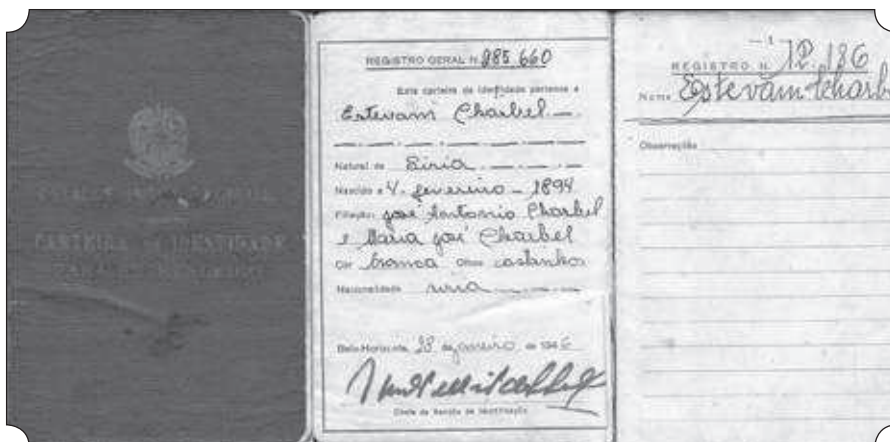 CARTEIRA DE IDENTIDADE
REGISTRO GERAL N. 985.660
Esta carteira de identidade pertence a
Estevam Charbel
Natural de Siria
Nascido a 4 - fevereiro - 1894
Filiação José Antonio Charbel
e Maria José Charbel
Côr branca Olhos castanhos
Nacionalidade siria
Belo Horizonte, 28 de janeiro de 1946
Chefe da Secção de Identificação
- 1 -
REGISTRO N. 12.186
Nome Estevam Charbe
Observações